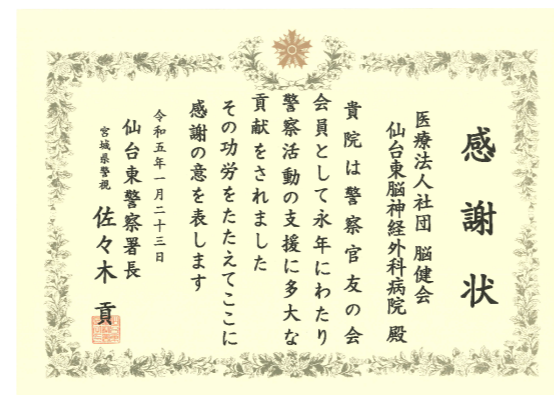 感謝状
医療法人社団 脳健会
仙台東脳神経外科病院 殿
貴院は警察官友の会
会員として永年にわたり
警察活動の支援に多大な
貢献をされました
その功労をたたえてここに
感謝の意を表します
令和五年一月二十三日
仙台東警察署長
宮城県警視 佐々木 貢